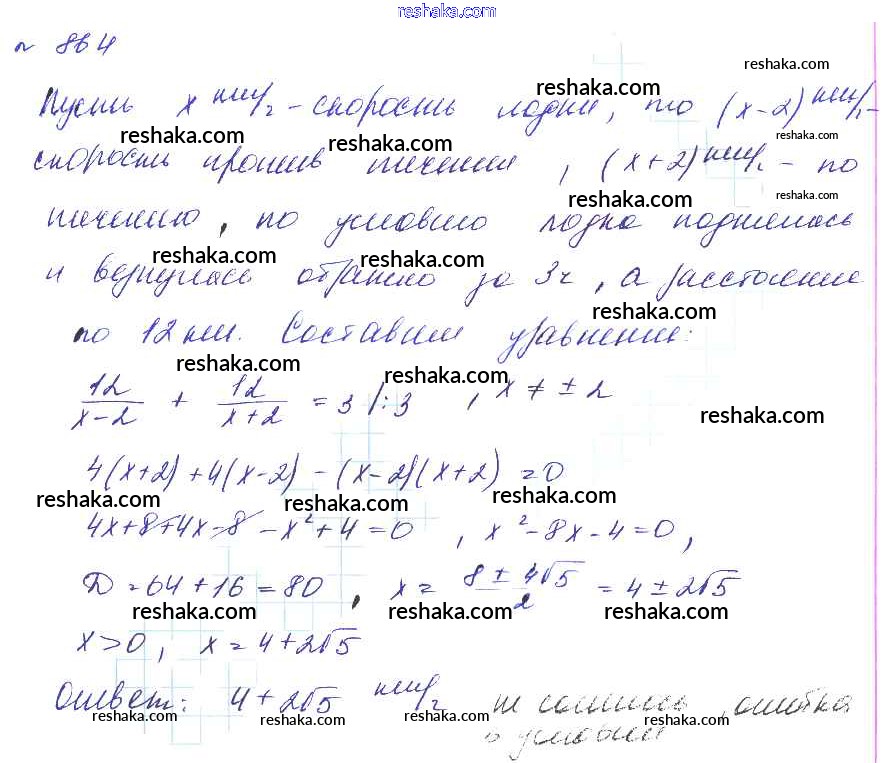 reshaka.com
№ 864
reshaka.com
Пусть x км/ч - скорость лодки, то (x-2) км/ч -
reshaka.com
reshaka.com reshaka.com reshaka.com
скорость против течения, (x+2) км/ч - по
reshaka.com reshaka.com
течению, по условию лодка поднялась
reshaka.com reshaka.com
и вернулась обратно за 3ч, а расстояние
reshaka.com
по 12 км. Составим уравнение:
reshaka.com reshaka.com
12/(x-2) + 12/(x+2) = 3 /:3 , x ≠ ± 2
reshaka.com
4(x+2)+4(x-2)-(x-2)(x+2)=0
reshaka.com reshaka.com reshaka.com
4x+8+4x-8-x²+4=0 , x²-8x-4=0,
D=64+16=80 , x= (8±4√5)/2 = 4±2√5
reshaka.com reshaka.com reshaka.com
x>0, x=4+2√5
Ответ: 4+2√5 км/ч , ошибка
reshaka.com reshaka.com reshaka.com reshaka.com
в условии